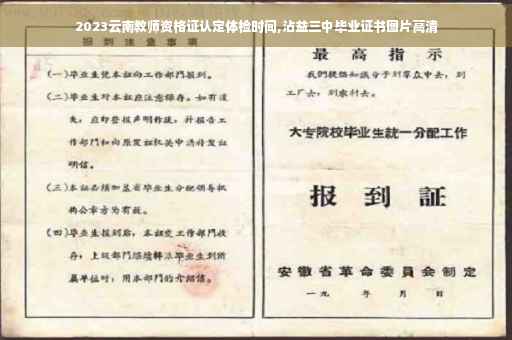 2023云南教师资格证认定体检时间,沾益三中毕业证书图片高清
报到注意事项
(一)毕业生凭本证向工作部门报到。
(二)毕业生对本证应注意保存。如有遗
失,应即登报声明作废,并报告工
作部门和向原发证机关申请补发证
明信。
(三)本证必须加盖省毕业生分配领导机
构公章方为有效。
(四)毕业生报到后,本证交工作部门收
存;上级部门继续转派毕业生到所
属单位时,用本部门的介绍信。
最高指示
我们提倡知识分子到羣众中去,到
工厂去,到农村去。
大专院校毕业生统一分配工作
报到证
安徽省革命委员会制定
一九 年 月 日